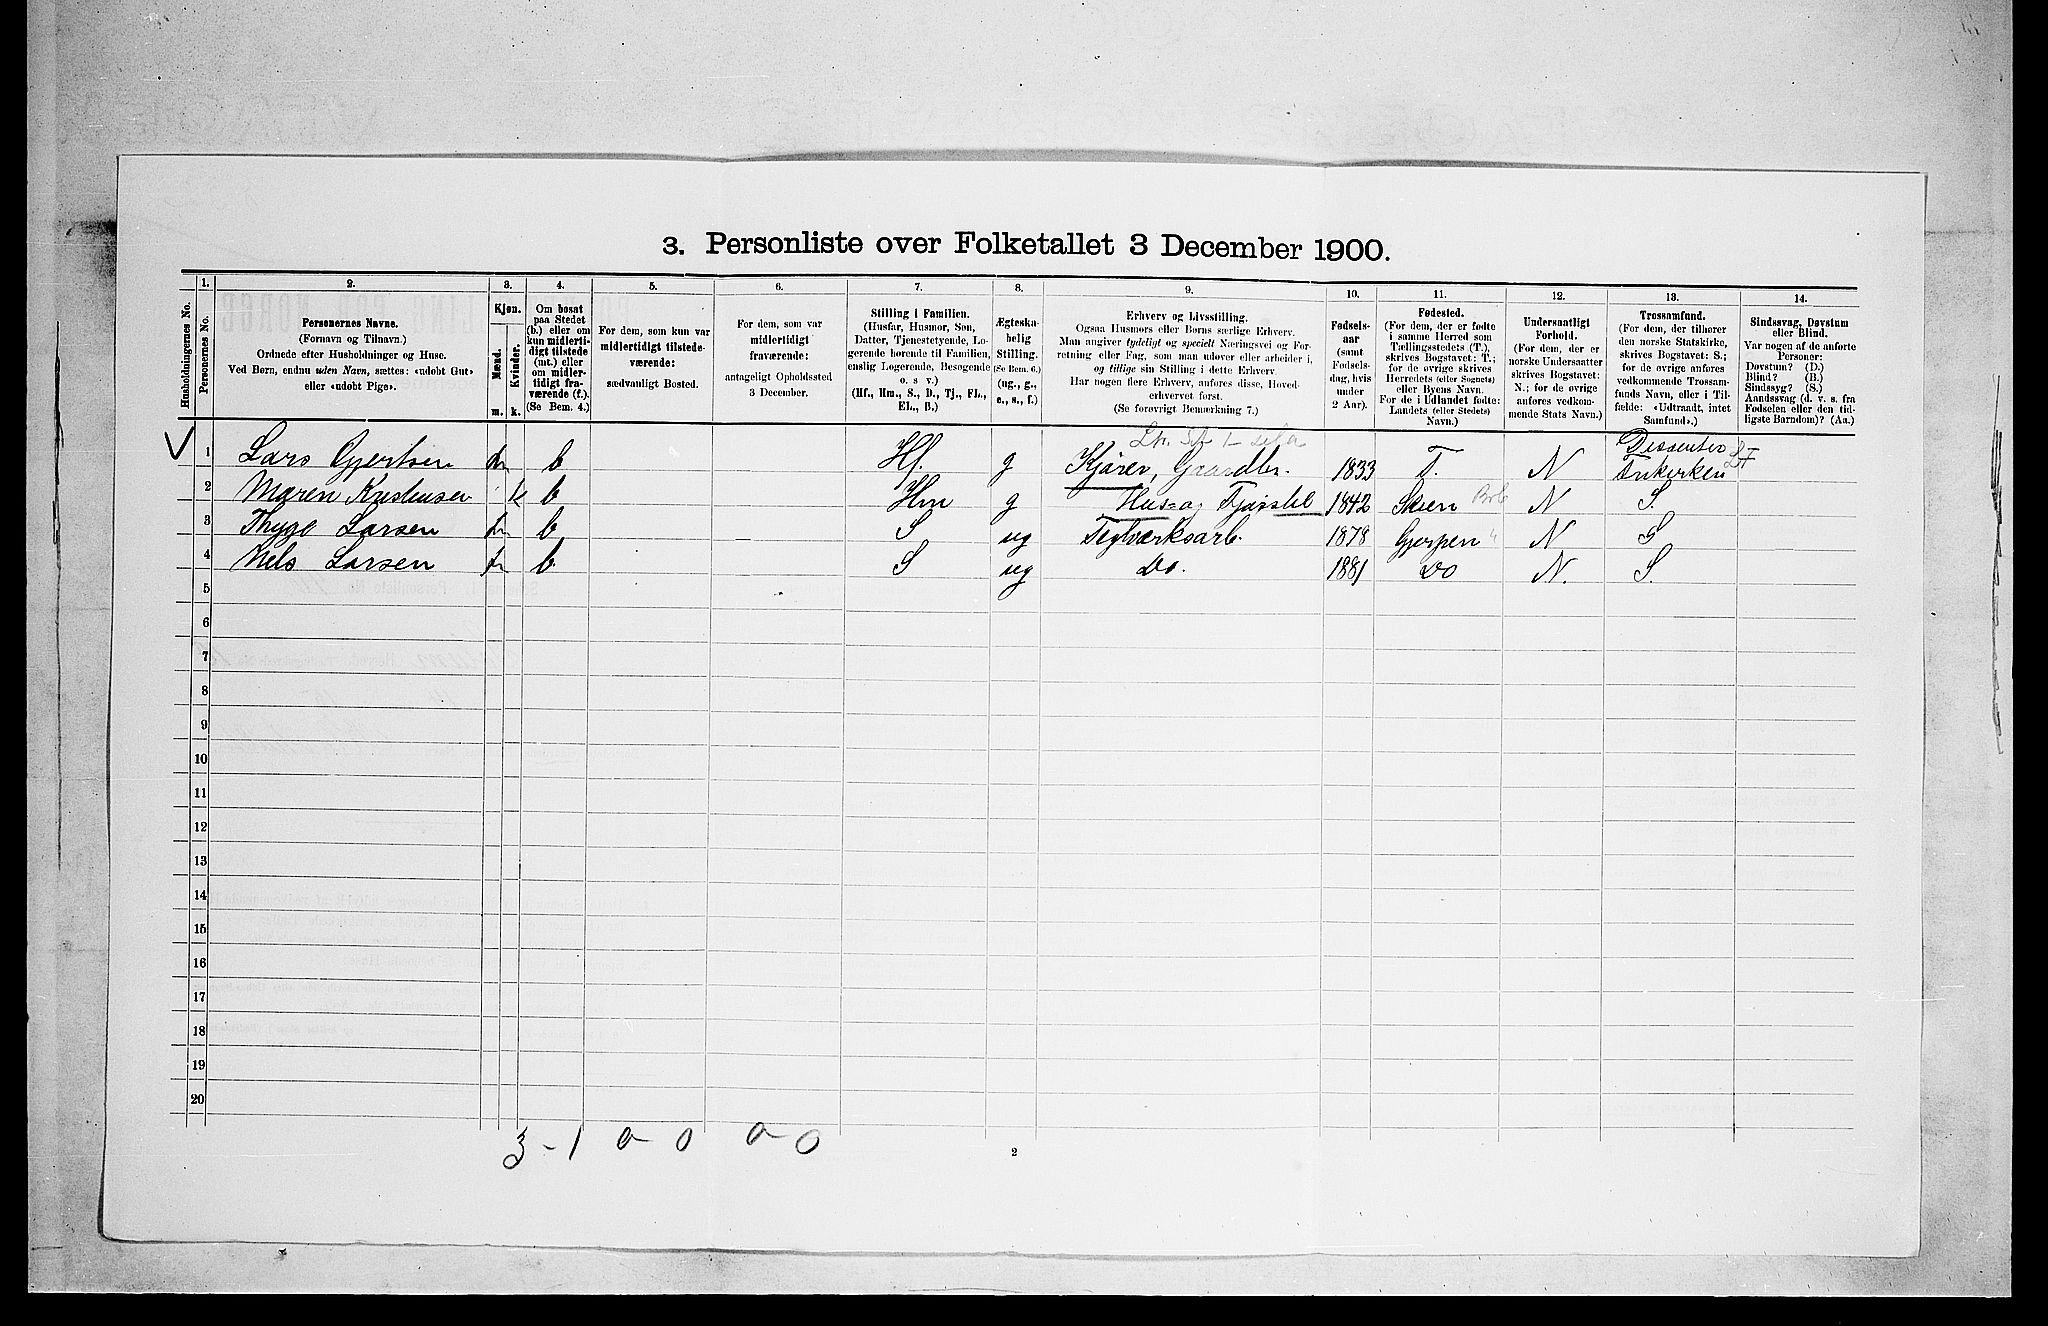 3. Personliste over Folketallet 3 December 1900.
Husholdningernes No.
1.
Personernes No.
2.
Personernes Navne.
(Fornavn og Tilnavn.)
Ordnede efter Husholdninger og Huse.
Ved Børn, endnu uden Navn, sættes: «udøbt Gut»
eller «udøbt Pige».
3.
Kjøn.
Mænd.
Kvinder.
m.
k.
4.
Om bosat
paa Stedet
(b.) eller om
kun midlerti-
digt tilstede
(mt.) eller
om midler-
tidigt fra-
værende (f.).
(Se Bem. 4.)
5.
For dem, som kun var
midlertidigt tilstede-
værende:
sædvanligt Bosted.
6.
For dem, som var
midlertidigt
fraværende:
antageligt Opholdssted
3 December.
7.
Stilling i Familien.
(Husfar, Husmor, Søn,
Datter, Tjenestetyende, Lo-
gerende hørende til Familien,
enslig Logerende, Besøgende
o. s v.)
(Hf., Hm., S., D., Tj., FL.,
EL., B.)
8.
Ægteska-
belig
Stilling.
(Se Bem. 6.)
(ug., g.,
e., s., f.)
9.
Erhverv og Livsstilling.
Ogsaa Husmors eller Børns særlige Erhverv.
Man angiver tydeligt og specielt Næringsvei og For-
retning eller Fag, som man udøver eller arbeider i,
og tillige sin Stilling i dette Erhverv.
Har nogen flere Erhverv, anføres disse, Hoved-
erhvervet først.
(Se forøvrigt Bemærkning 7.)
10.
Fødsels-
aar
(samt
Fødsels-
dag, hvis
under
2 Aar).
11.
Fødested.
(For dem, der er fødte
i samme Herred som
Tællingsstedets (T.),
skrives Bogstavet: T.;
for de øvrige skrives
Herredets (eller Sognets)
eller Byens Navn.
For de i Udlandet fødte:
Landets (eller Stedets)
Navn.)
12.
Undersaatligt
Forhold.
(For dem, der er
norske Undersaatter
skrives Bogstavet:
N.; for de øvrige
anføres vedkom-
mende Stats Navn.)
13.
Trossamfund.
(For dem, der tilhører
den norske Statskirke,
skrives Bogstavet: S.;
for de øvrige anføres
vedkommende Trossam-
funds Navn, eller i Til-
fælde: «Udtraadt, intet
Samfund».)
14.
Sindssvag, Døvstum
eller Blind.
Var nogen af de anførte
Personer:
Døvstum? (D.)
Blind? (B.)
Sindssyg? (S.)
Aandssvag (d. v. s. fra
Fødselen eller den tid-
ligste Barndom)? (Aa.)
1 Lars Gjertsen m b Hf. g Kjører, Gaardbr. 1833 T. N Dissenter Frikirken
2 Maren Kristensen k b Hm g Hus- og Fjøsstel 1842 Skien N S.
3 Thyge Larsen m b S ug Teglværksarb. 1878 Gjerpen N S
4 Nels Larsen m b S ug Do. 1881 Do N. S.
5
6
7
8
9
10
11
12
13
14
15
16
17
18
19
20
3 - 1 0 - 0 0 - 0
2